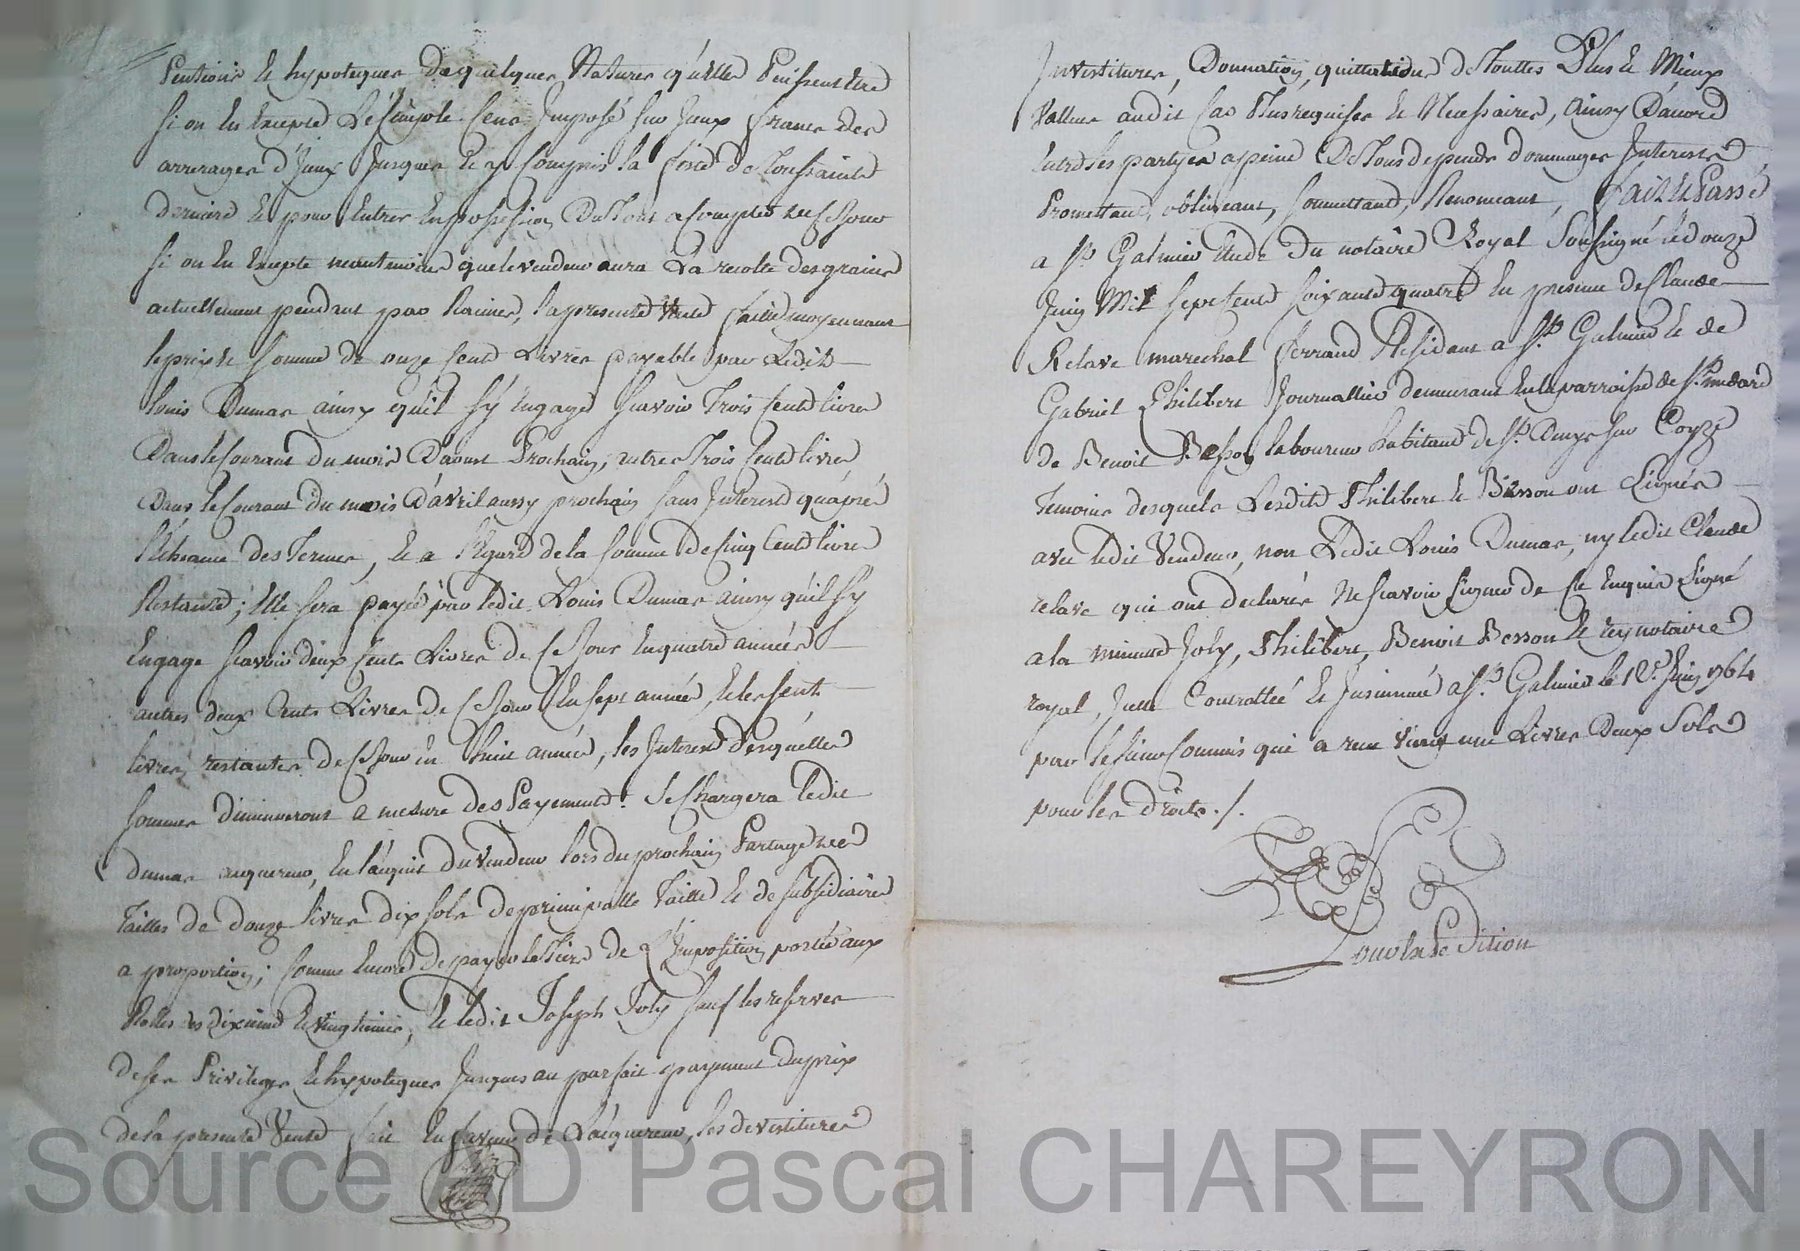 Pentions et hypoteques de quelques Natures qu'elles Puissent etre
si on En Excepte Le simple Cens Imposé sur Iceux francs des
arrerages d'Iceux Jusques et y Compris la feste de toussaints
derniere et pour Entrer En possession Du tout a Compter de Ce Jour
si on En Excepte neantmoins que le vendeur aura La recolte des grains
actuellement pendant par Racines, la presente Vente faitte moyennant
le prix et somme de onze Cents Livres payable par Ledit
louis Dumas ainsy qu'il s'y Engage scavoir Trois Cents livres
Dans le Courant du mois D'aoust Prochain, autres Trois Cents livres
Dans le Courant du mois d'avril aussy prochain sans Interest qu'apres
l'Echeance des Termes, Et a l'Egard de la somme de Cinq Cents livres
Restante; Elle sera payée par ledit Louis Dumas ainsy qu'il s'y
Engage scavoir deux Cents Livres de Ce Jour En quatre années
autres deux Cents Livres de Ce Jour En sept années, et les Cent
livres restantes de Ce Jour En huit années, les Interests desquelles
sommes diminueront a mesure des Payements. Se Chargera ledit
dumas acquereur, En l'acquit du vendeur lors du prochain Partage des
Tailles de douze livres dix sols de principalle Taille et de subsidiaires
a proportion; Comme Encore de payer le tiers de L'Imposition portée aux
Rolles des dixieme et vingtieme, Et ledit Joseph Joly sauf les reserves
de ses Privileges et hypoteques Jusques au parfait payement du prix
de la presente Vente fait En faveur de L'acquereur, les devestitures
Investitures, Donnation, quittances de touttes Plus et Mieux
Valleur audit Cas Plus requises et Necessaires, ainsy D'accord
Entre les partyes a peine De tous depends dommages Interests
Promettant, obligeant, soumettant, Renonceant, Fait Et Passé
a St Galmier Etude Du notaire Royal Soussigné le douze
Juin Mil sept Cents soixante quatre En presence de Claude
Relave marechal ferrand Residant a St Galmier et de
Gabriel Philibert Journallier demeurant En la parroisse de St medard
de Benoit Besson laboureur habitant de St Denys sur Coyze
temoins desquels Lesdits Philibert et Besson ont Signés
avec ledit Vendeur, non Ledit Louis Dumas, ny ledit Claude
relave qui ont declarés Ne scavoir signer de Ce Enquis Signé
a la minutte Joly, Philibert, Benoit Besson et rey notaire
royal, Icelle Controllée et Insinuée a St Galmier le 12e Juin 1764
par le sieur Commis qui a recu vingt une Livres Deux Sols
pour les droits ./.
Pour Expedition
Source AD Pascal CHAREYRON